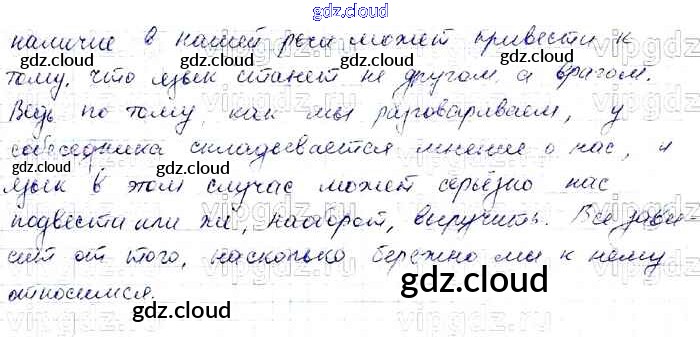 gdz.cloud
gdz.cloud
наличие в нашей речи может привести к
тому, что язык станет не другом, а врагом.
gdz.cloud
gdz.cloud
Ведь по тому, как мы разговариваем, у
собеседника складывается мнение о нас, и
gdz.cloud
gdz.cloud
язык в этом случае может серьёзно нас
gdz.cloud
gdz.cloud
подвести или же, наоборот, выручить. Все зави-
сит от того, насколько бережно мы к нему
gdz.cloud
gdz.cloud
относимся.
gdz.cloud